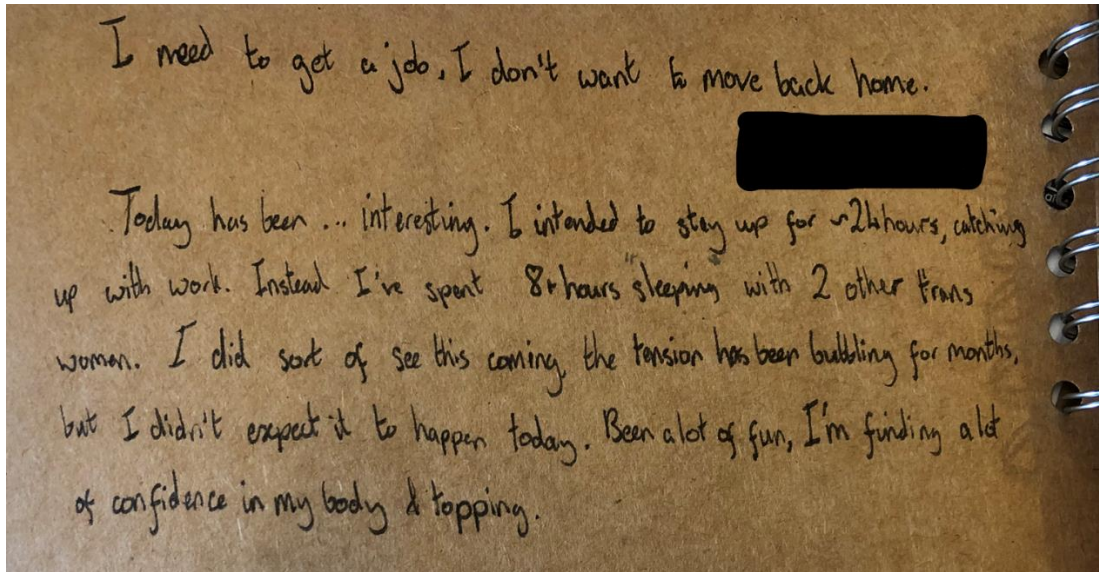 I need to get a job, I don't want to move back home.
Today has been ... interesting. I intended to stay up for ~24hours, catching
up with work. Instead I've spent 8+hours "sleeping" with 2 other trans
women. I did sort of see this coming, the tension has been bubbling for months,
but I didn't expect it to happen today. Been a lot of fun, I'm finding a lot
of confidence in my body & topping.